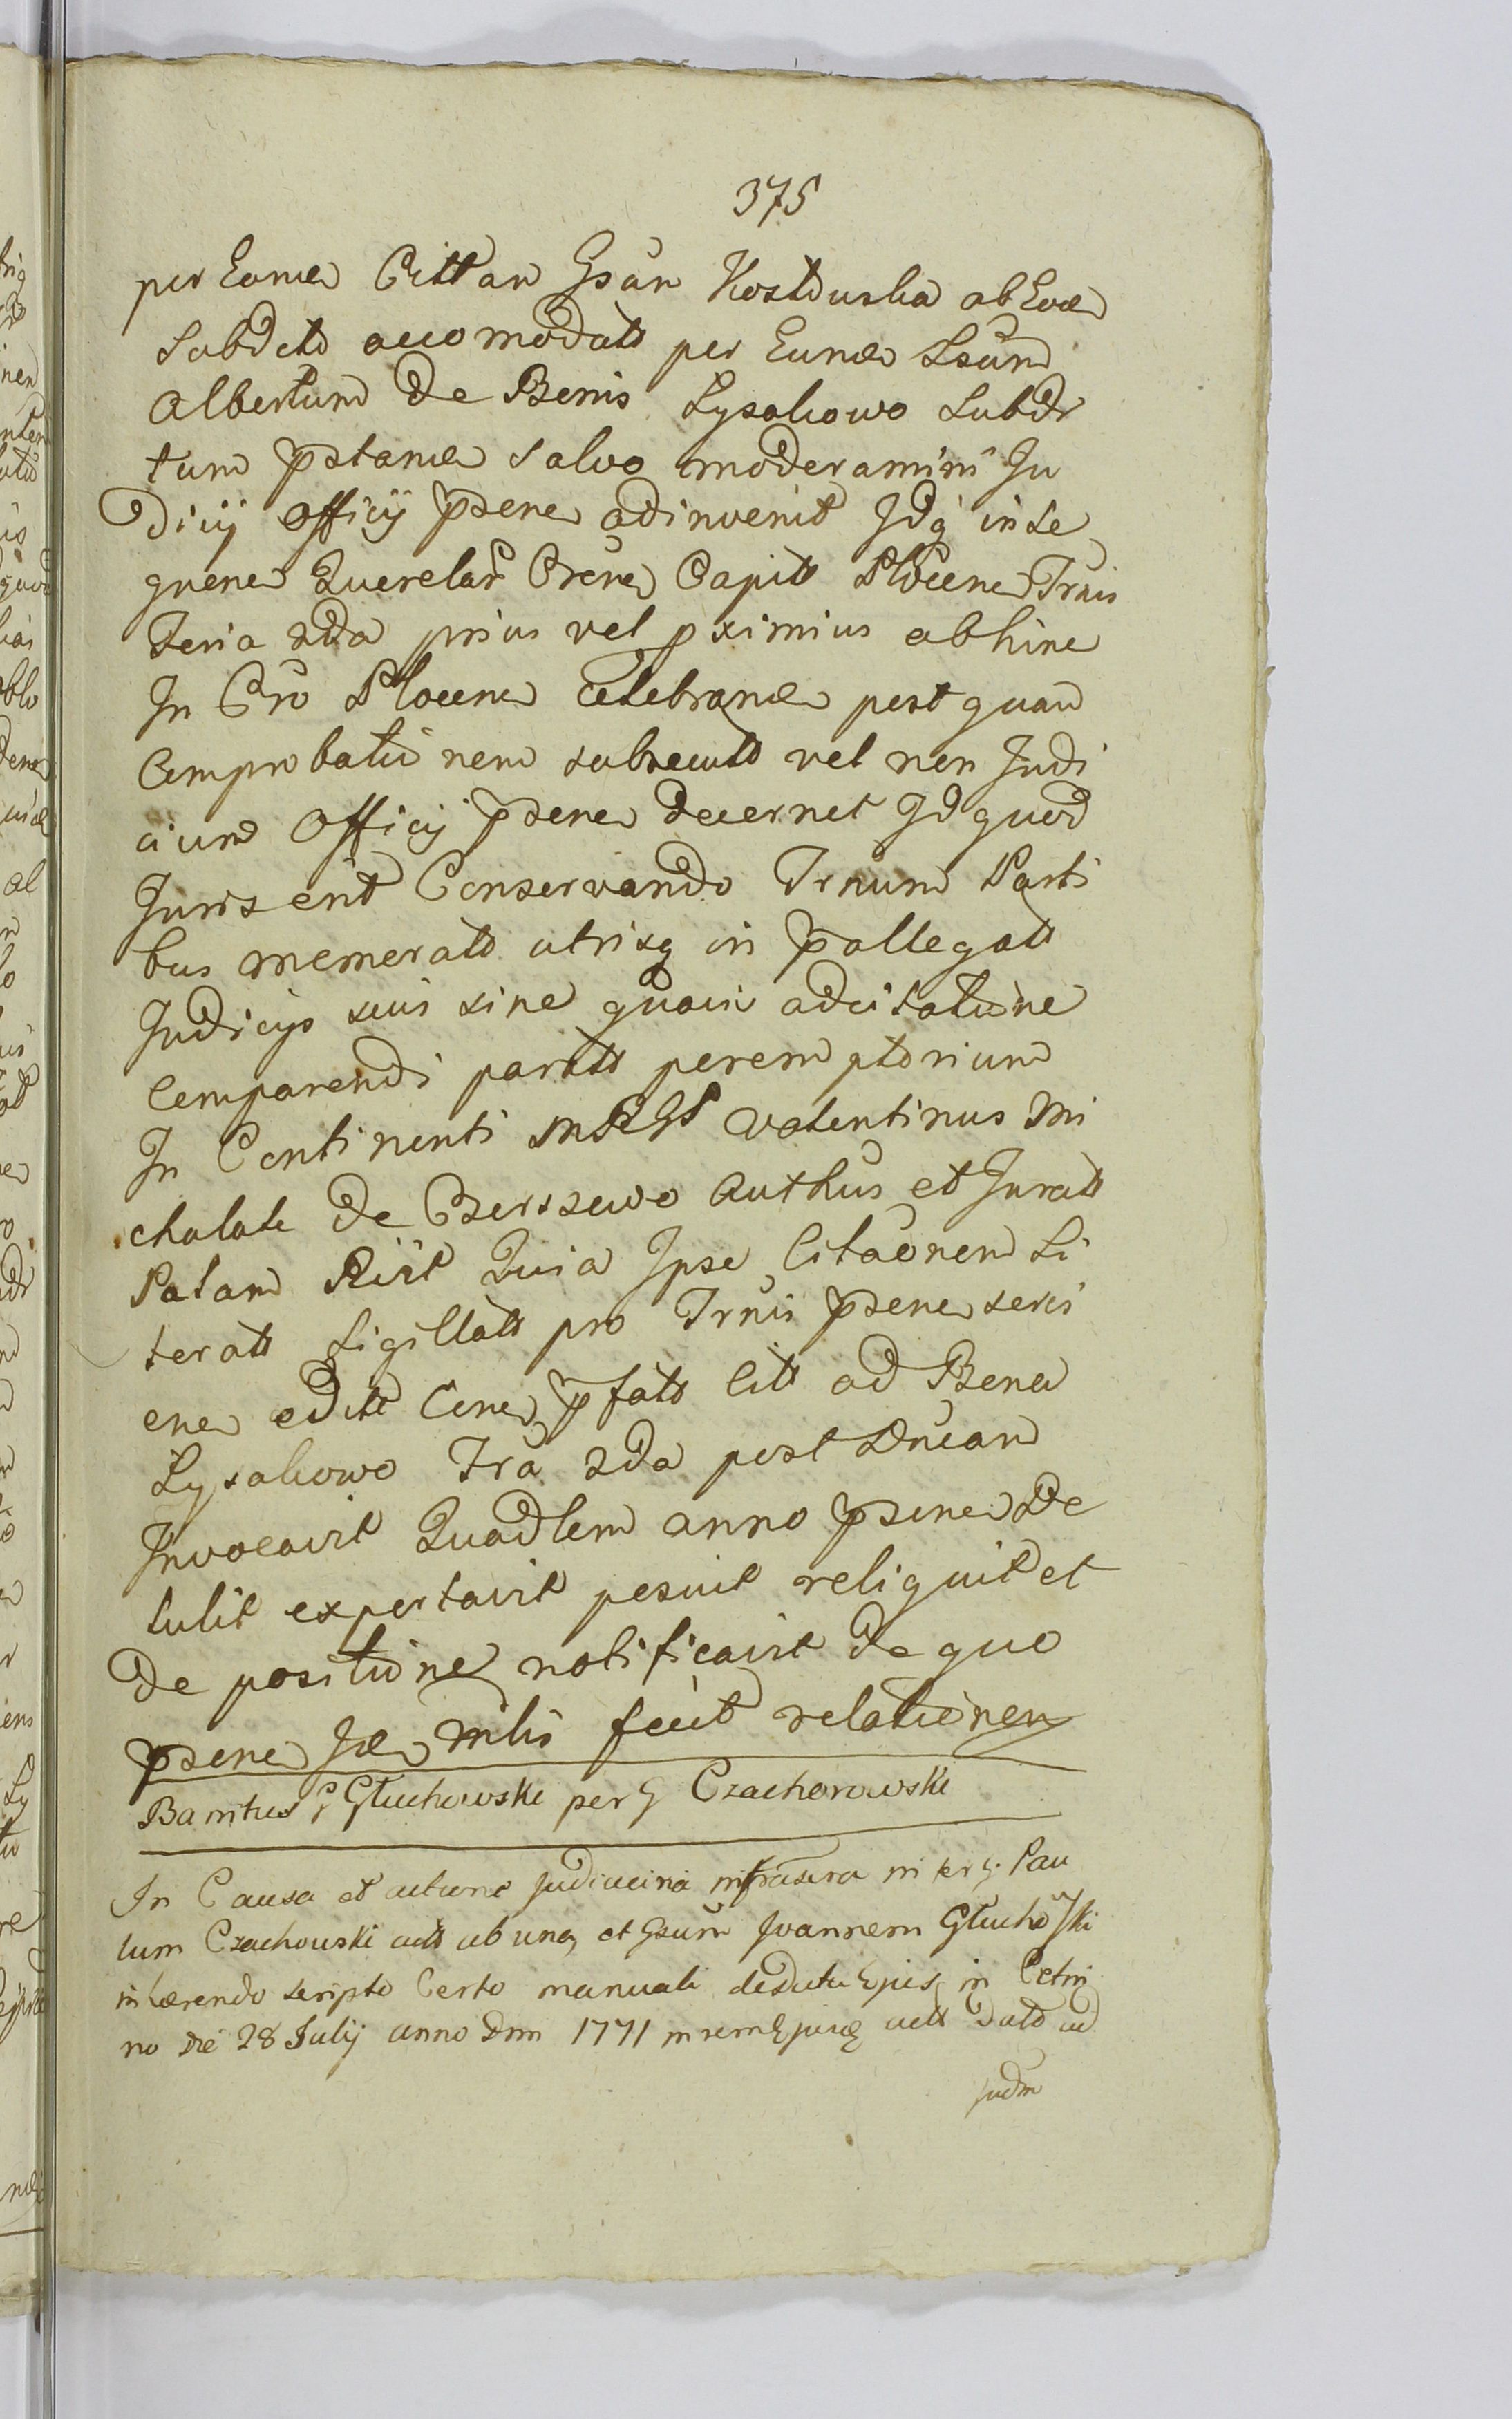 375
per Eanæ Citt an Gsan Kostduska ab Eoæ
Subdto accomodatt per Eunæ Lsūm
Albertum de Bonis Lysakowo Subdi
tum pstanæ salvo moderamini Ju
dicij Officij psene adinvenit Idq in se
quene Querelar Crene Capitt Plocene Trnis
Feria 2da prius vel pximius abhinc
In Cro Plocene Celebranæ post quam
Comprobationem subsecutt vel non Judi
cium Officij psene decernet Id quod
Juris erit Conservando Trnum Parti
bus memoratt utrisq in pallegatt
Judicijs suis sine quavis adcitatione
Comparendi paritt peremptorium
In Continenti MRGP Valentinus Mi
chalak de Borszewo Authus et Juratt
Palam Riit Quia Ipse Citaōnem Li
teratt Sigillatt pro Trnis psene seris
ene editt Cone pfatt Citt ad Bona
Lysakowo Fra 2da post Dnicam
Invocavit Quadlem anno psene De
tulit exportavit posuit reliquit et
de positione notificavit de quo
psene Jæ mlis fecit relationem
Banitus G Głuchowski per G Czachorowski
In Causa et actione judiciaria infrascra inter G. Pau
lum Czachowski actt ab una, et Gsum Joannem Głucho ski
inhærendo scripto Certo manuali desdutu Ejusq in Cetni
no die 28 Julij anno Dni 1771 in rem Ejusq actt datt ad
judm